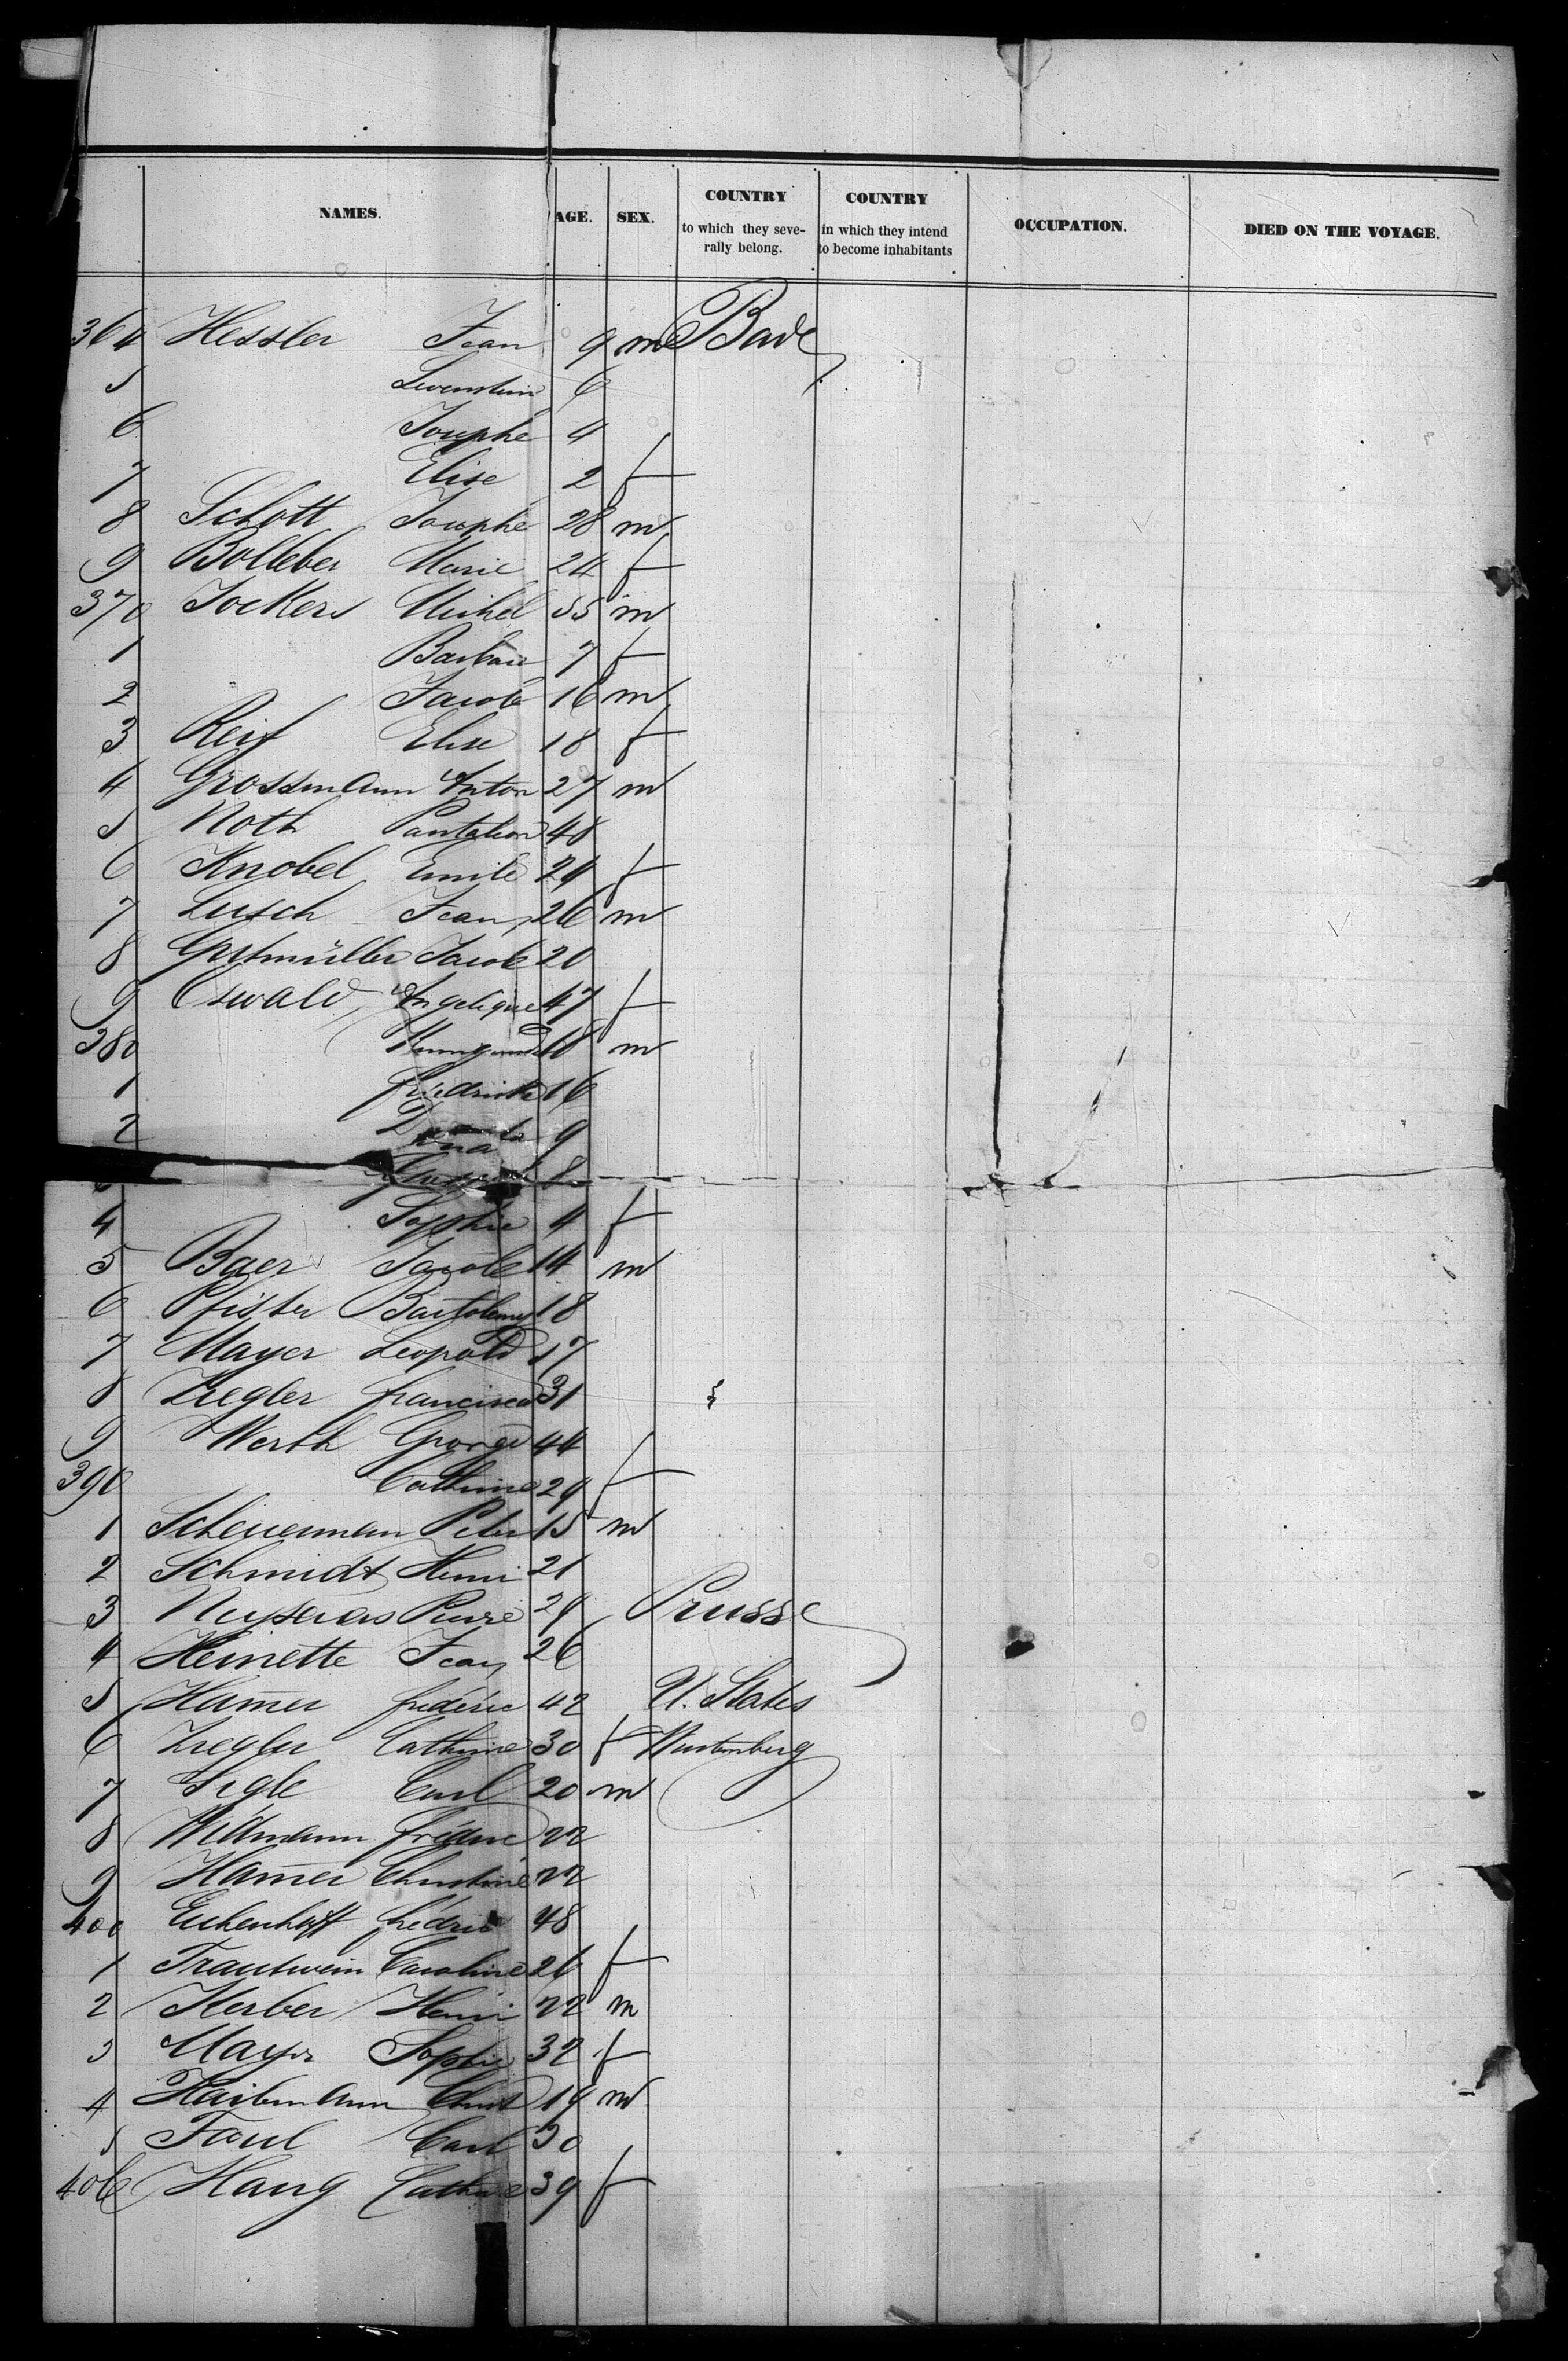 NAMES. AGE. SEX. COUNTRY to which they seve-rally belong. COUNTRY in which they intend to become inhabitants OCCUPATION. DIED ON THE VOYAGE.
364 Hessler Jean 9 m Bade
5 6
6 Josephe 4
7 Elise 2 f
8 Schott Josephe 28 m
9 Bolleber Marie 24 f
370 Jockers Michel 55 m
1 Barbara 7 f
2 Jacob 16 m
3 Reif Elise 18 f
4 Grossmann Anton 27 m
5 Noth Pantaleon 48
6 Knobel Emile 24 f
7 Lusch Jean 26 m
8 Jacob 20
9 Oswald, Angelique 47 f
380 18 m
1 friedricke 16
2 9
8
4 Sophie 4 f
5 Baer Jacob 14 m
6 Pfister Bartolemy 18
7 Mayer Leopold 17
8 Ziegler francisca 31
9 Werth George 44
390 Cathrine 29 f
1 Scheuerman Peter 15 m
2 Schmidt Henri 21
3 Pierre 29 Prusse
4 Heinette Jean 26
5 Ham̄er frédéric 42 U. States
6 Ziegler Cathrine 30 f Wurtemberg
7 Sigle Carl 20 m
8 Widmann fréderic 22
9 Ham̄er Christine 22
400 frédric 48
1 Trautwein Caroline 26 f
2 Kerber Henri 22 m
3 Mayer Sophie 32 f
4 19 m
5 Faul Carl 30
406 Haug Cathrine 39 f